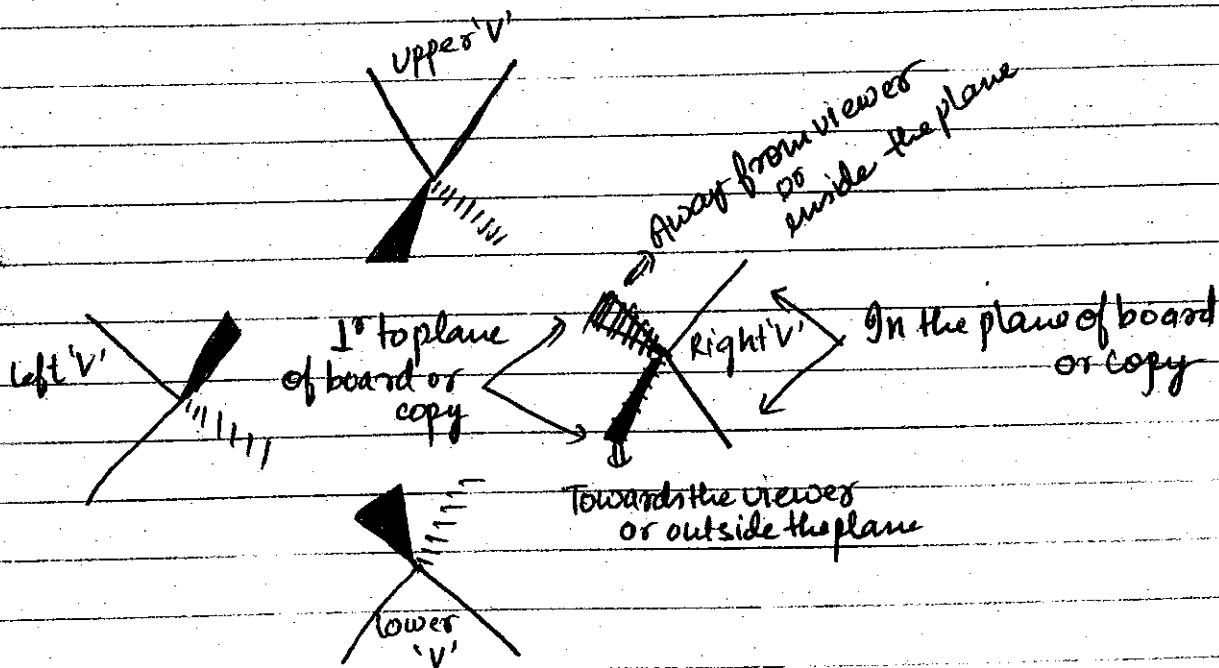 Upper 'V'
Away from viewer
or
inside the plane
Left 'V'
⊥r to plane
of board or
copy
Right 'V'
In the plane of board
or copy
Towards the viewer
or outside the plane
lower
'V'